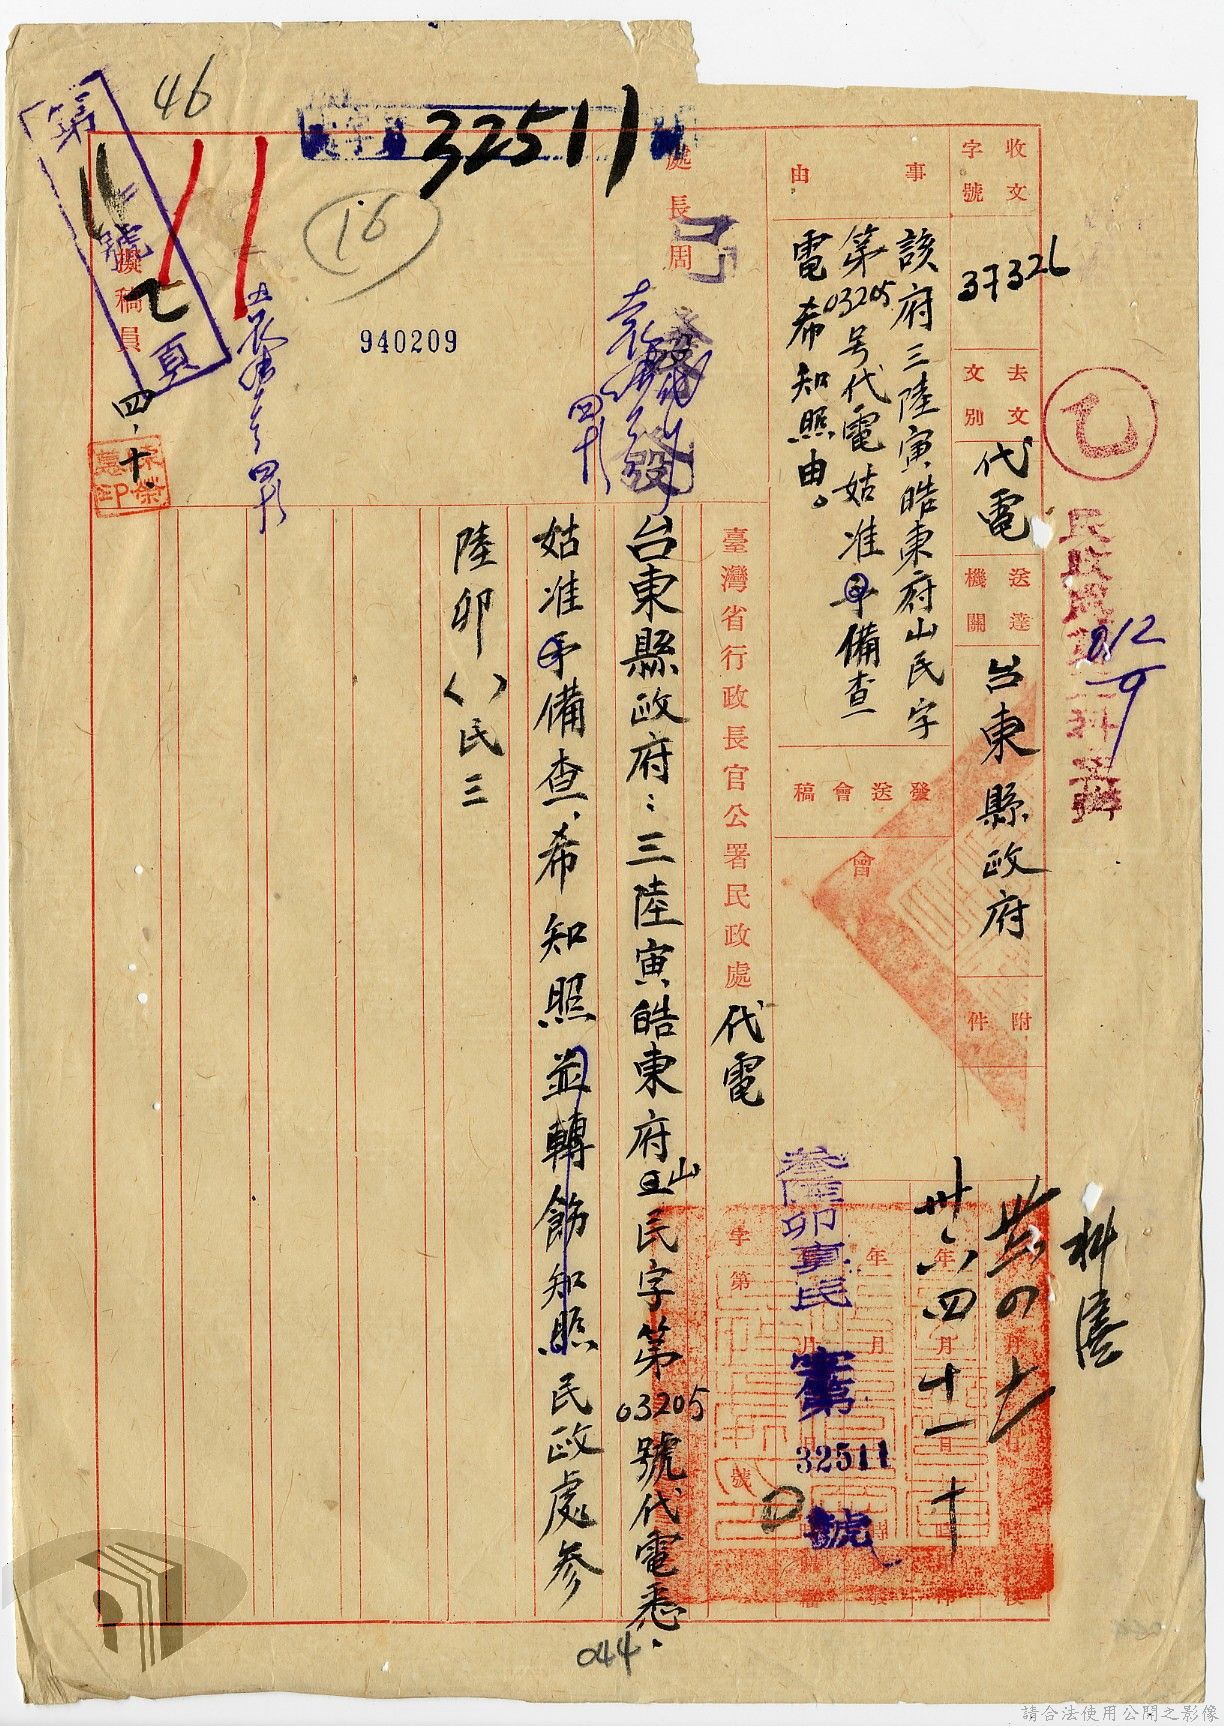 46
32511
16
940209
第 11 號 乙頁
收文字號
37326
去文文別
代電
送達機關
台東縣政府
附件
事由
該府三陸寅皓東府山民字
第03205号代電姑准予備查
電希知照由。
發送會稿
會
乙
科
卅六 四 十一
十
叁陸卯真民
字第
32511
號
臺灣省行政長官公署民政處代電
處長周
四.十
台東縣政府：三陸寅皓東府山民字第03205號代電悉、
姑准予備查、希知照並轉飭知照民政處参
陸卯()民三
擬稿員
四、十、
044
請合法使用公開之影像